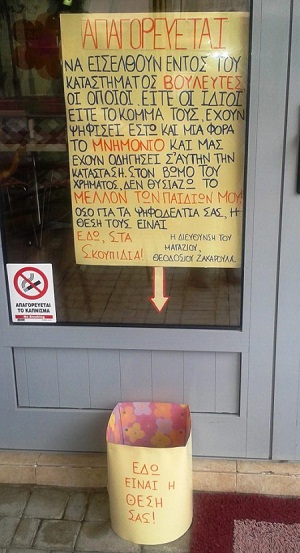 ΑΠΑΓΟΡΕΥΕΤΑΙ
ΝΑ ΕΙΣΕΛΘΟΥΝ ΕΝΤΟΣ ΤΟΥ
ΚΑΤΑΣΤΗΜΑΤΟΣ ΒΟΥΛΕΥΤΕΣ
ΟΙ ΟΠΟΙΟΙ, ΕΙΤΕ ΟΙ ΙΔΙΟΙ
ΕΙΤΕ ΤΟ ΚΟΜΜΑ ΤΟΥΣ, ΕΧΟΥΝ
ΨΗΦΙΣΕΙ ΕΣΤΩ ΚΑΙ ΜΙΑ ΦΟΡΑ
ΤΟ ΜΝΗΜΟΝΙΟ ΚΑΙ ΜΑΣ
ΕΧΟΥΝ ΟΔΗΓΗΣΕΙ Σ'ΑΥΤΗΝ ΤΗΝ
ΚΑΤΑΣΤΑΣΗ. ΣΤΟΝ ΒΩΜΟ ΤΟΥ
ΧΡΗΜΑΤΟΣ, ΔΕΝ ΘΥΣΙΑΖΩ ΤΟ
ΜΕΛΛΟΝ ΤΩΝ ΠΑΙΔΙΩΝ ΜΟΥ!
ΟΣΟ ΓΙΑ ΤΑ ΨΗΦΟΔΕΛΤΙΑ ΣΑΣ, Η
ΘΕΣΗ ΤΟΥΣ ΕΙΝΑΙ
ΕΔΩ, ΣΤΑ
ΣΚΟΥΠΙΔΙΑ!
Η ΔΙΕΥΘΥΝΣΗ ΤΟΥ
ΜΑΓΑΖΙΟΥ,
ΘΕΟΔΟΣΙΟΥ ΖΑΚΑΡΟΥΛΑ.
ΑΠΑΓΟΡΕΥΕΤΑΙ
ΤΟ ΚΑΠΝΙΣΜΑ
No Smoking
ΕΔΩ
ΕΙΝΑΙ Η
ΘΕΣΗ
ΣΑΣ!